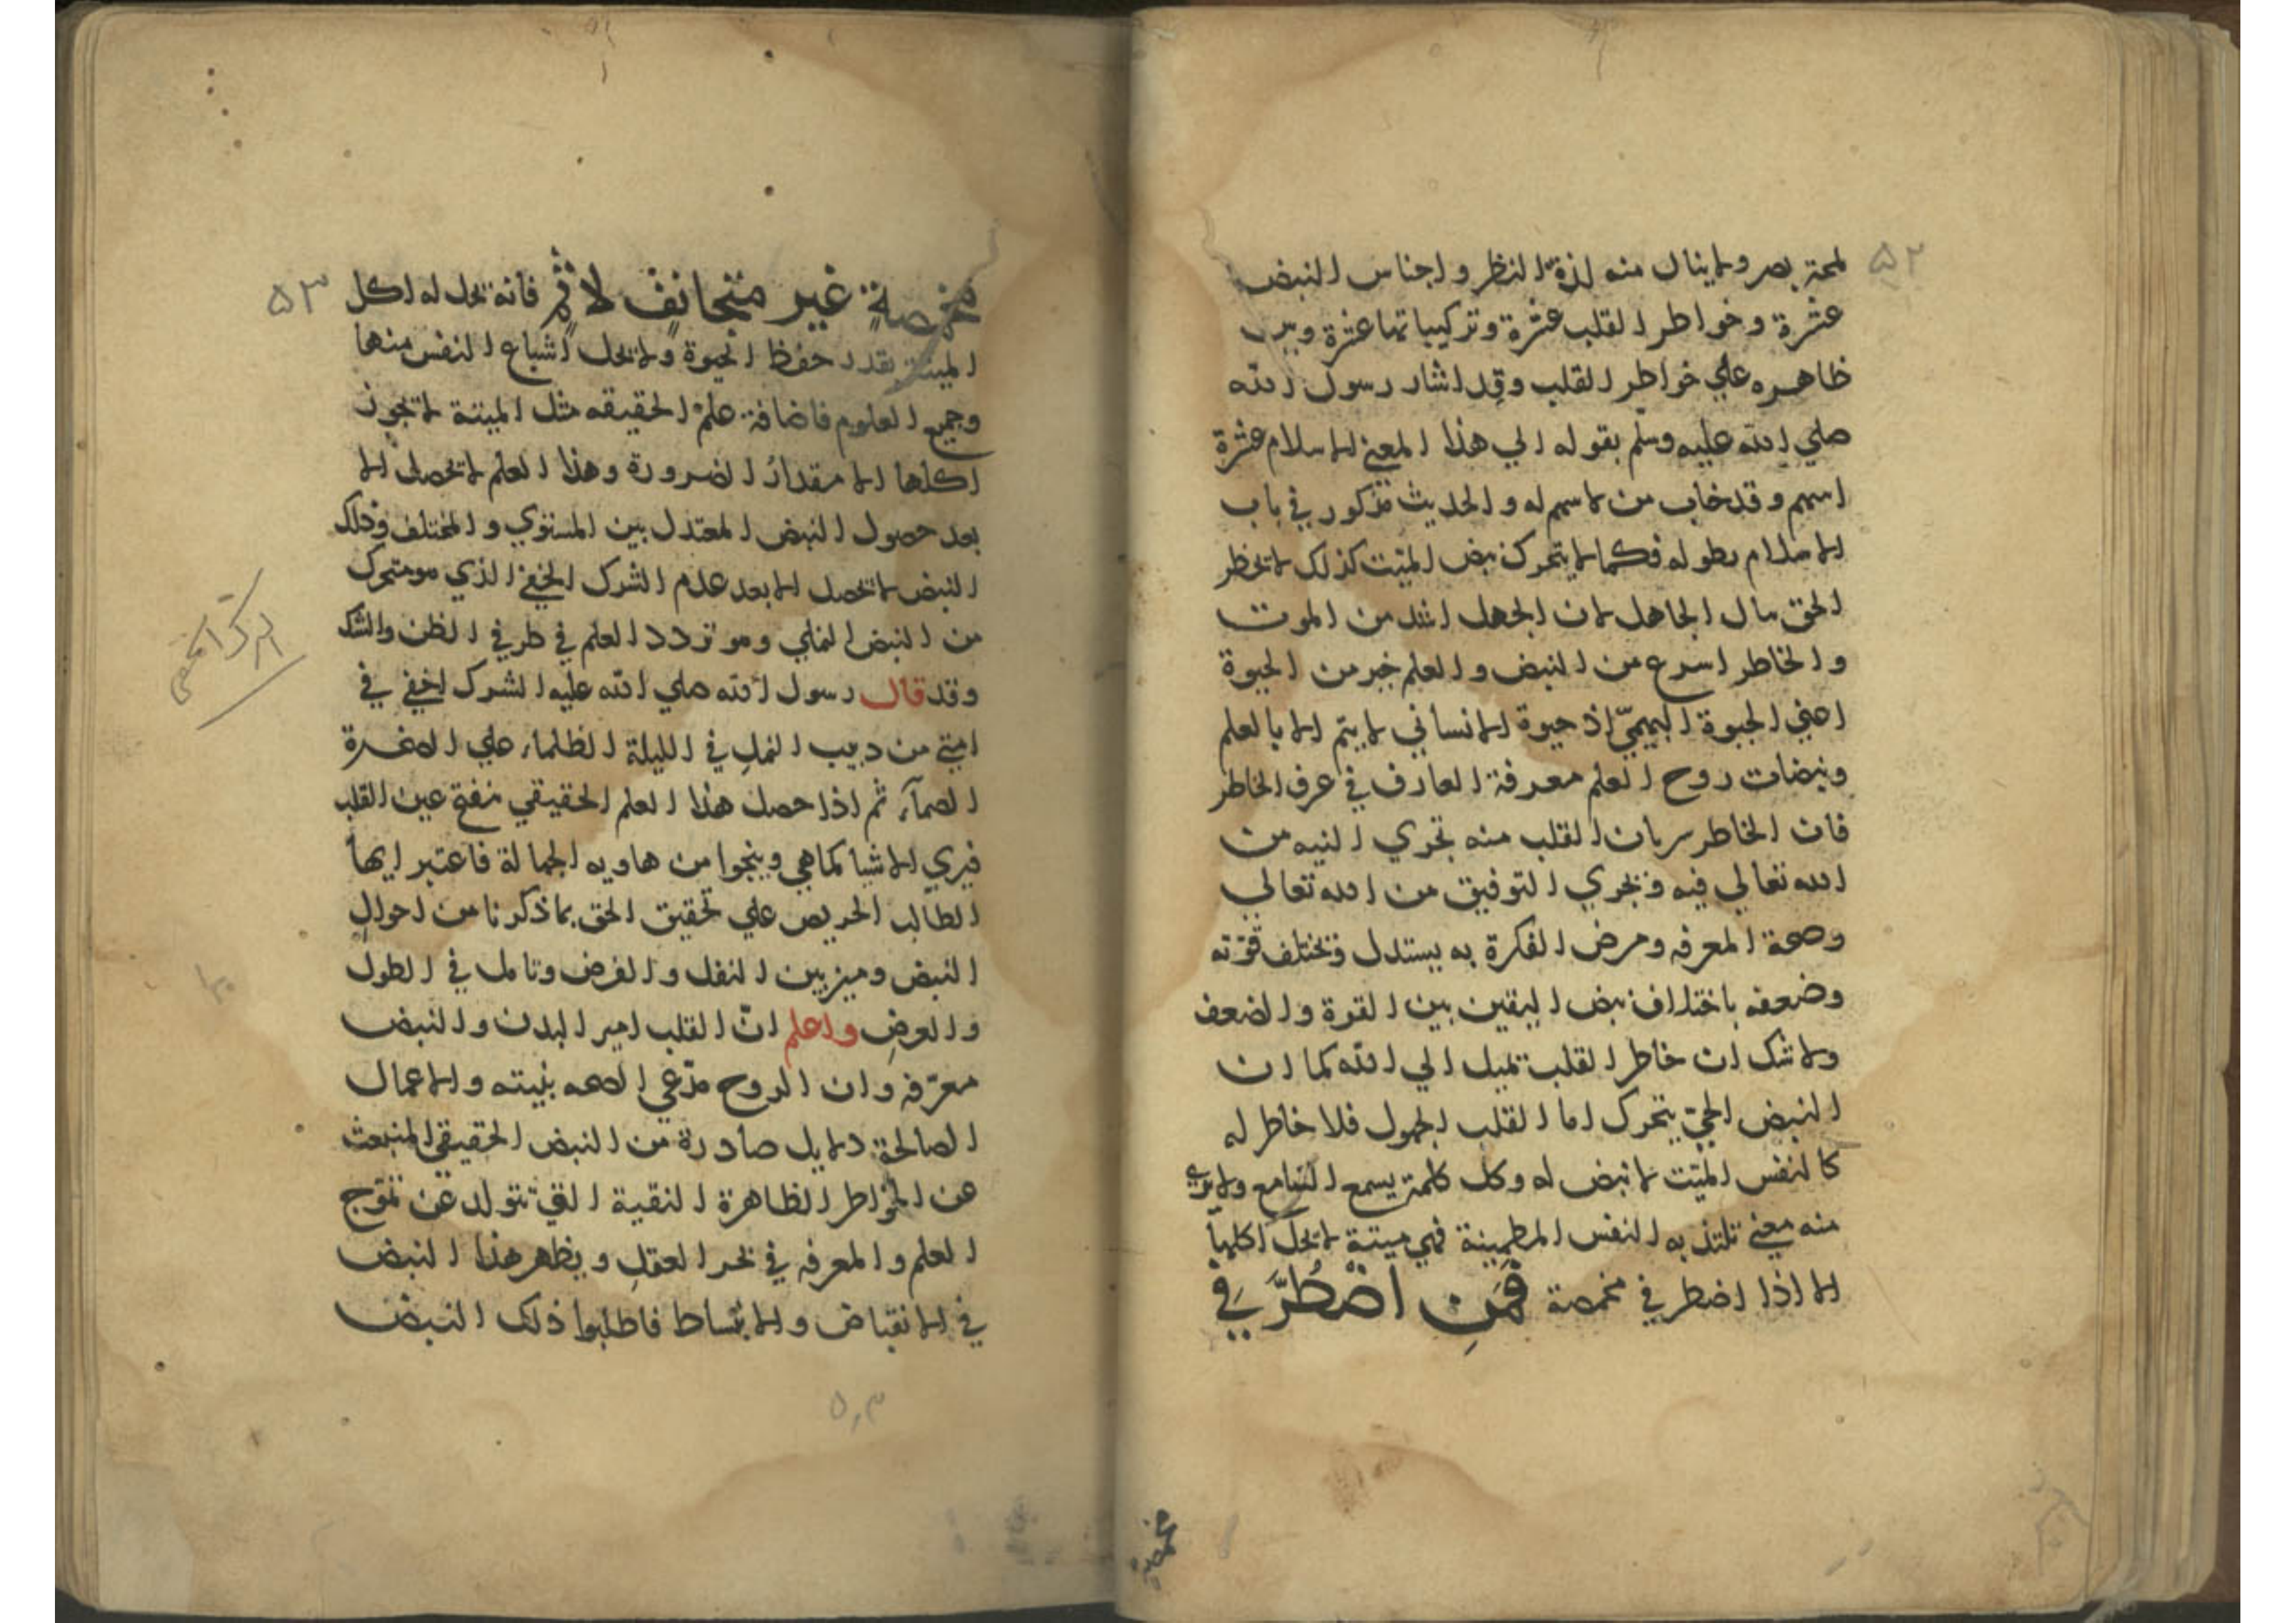 ۵۲
لمحة بصر ولا ينال منه لذة النظر واجناس النبض
عشرة وخواطر القلب عشرة وتركيباتها عشرة
ظاهره علي خواطر القلب وقد اشار رسول الله
صلي الله عليه وسلم بقوله الي هذا المعني الاسلام عشرة
اسهم وقد خاب من لا سهم له والحديث مذكور في باب
الاسلام بطوله فكما لا يتحرك نبض الميت كذلك لا تخطر
الحق ببال الجاهل لان الجهل اشد من الموت
والخاطر اسرع من النبض والعلم خير من الحيوة
اعني الحيوة البهيمي اذ حيوة الانساني لا يتم الا بالعلم
ونبضات روح العلم معرفة العارف في عرف الخاطر
فان الخاطر سريان القلب منه تجري النيه من
الله تعالي فيه وتجري التوفيق من الله تعالي
وصحة المعرفه ومرض الفكرة به يستدل وتختلف قوته
وضعفه باختلاف نبض اليقين بين القوة والضعف
ولا شك ان خاطر القلب تميل الي الله كما ان
النبض الحي يتحرك اما القلب الجهول فلا خاطر له
كالنفس الميت لا نبض له وكل كلمة يسمع السامع ولا
منه معني تلتذ به النفس المطمينة فهي ميتة لا تحل اكلها
الا اذا اضطر في مخمصة فَمَنِ اضْطُرَّ فِي
مخمصة
۵۳
مخمصةٍ غير متجانفٍ لاثمٍ فانه تحل له اكل
الميتة بقدر حفظ الحيوة ولا تحل اشباع النفس منها
وجميع العلوم فاضافة علم الحقيقه مثل الميتة لا تجوز
اكلها الا مقدار الضرورة وهذا العلم لا تحصل الا
بعد حصول النبض المعتدل بين المستوي والمختلف وذلك
النبض لا تحصل الا بعد عدم الشرك الخفي الذي هو متحرك
من النبض النملي وهو تردد العلم في طرفي الظن والشك
وقد قال رسول الله صلي الله عليه الشرك اخفي في
امتي من دبيب النمل في الليلة الظلماء علي الصخرة
الصمآء ثم اذا حصل هذا العلم الحقيقي تنفتح عين القلب
فيري الاشيا كماهي وينجوا من هاويه الجهالة فاعتبر ايها
الطالب الحريص علي تحقيق الحق بما ذكرنا من احوال
النبض وميز بين النفل والفرض وتامل في الطول
والعرض واعلم انّ القلب امير البدن والنبض
معرّفه وان الروح مدّعي الصحه بنيته والاعمال
الصالحة دلايل صادرة من النبض الحقيقي المنبعث
عن الخواطر الظاهرة النقية التي تتولد عن تموّج
العلم والمعرفه في بحر العقل ويظهر هذا النبض
في الانقباض والانبساط فاطلبوا ذلك النبض